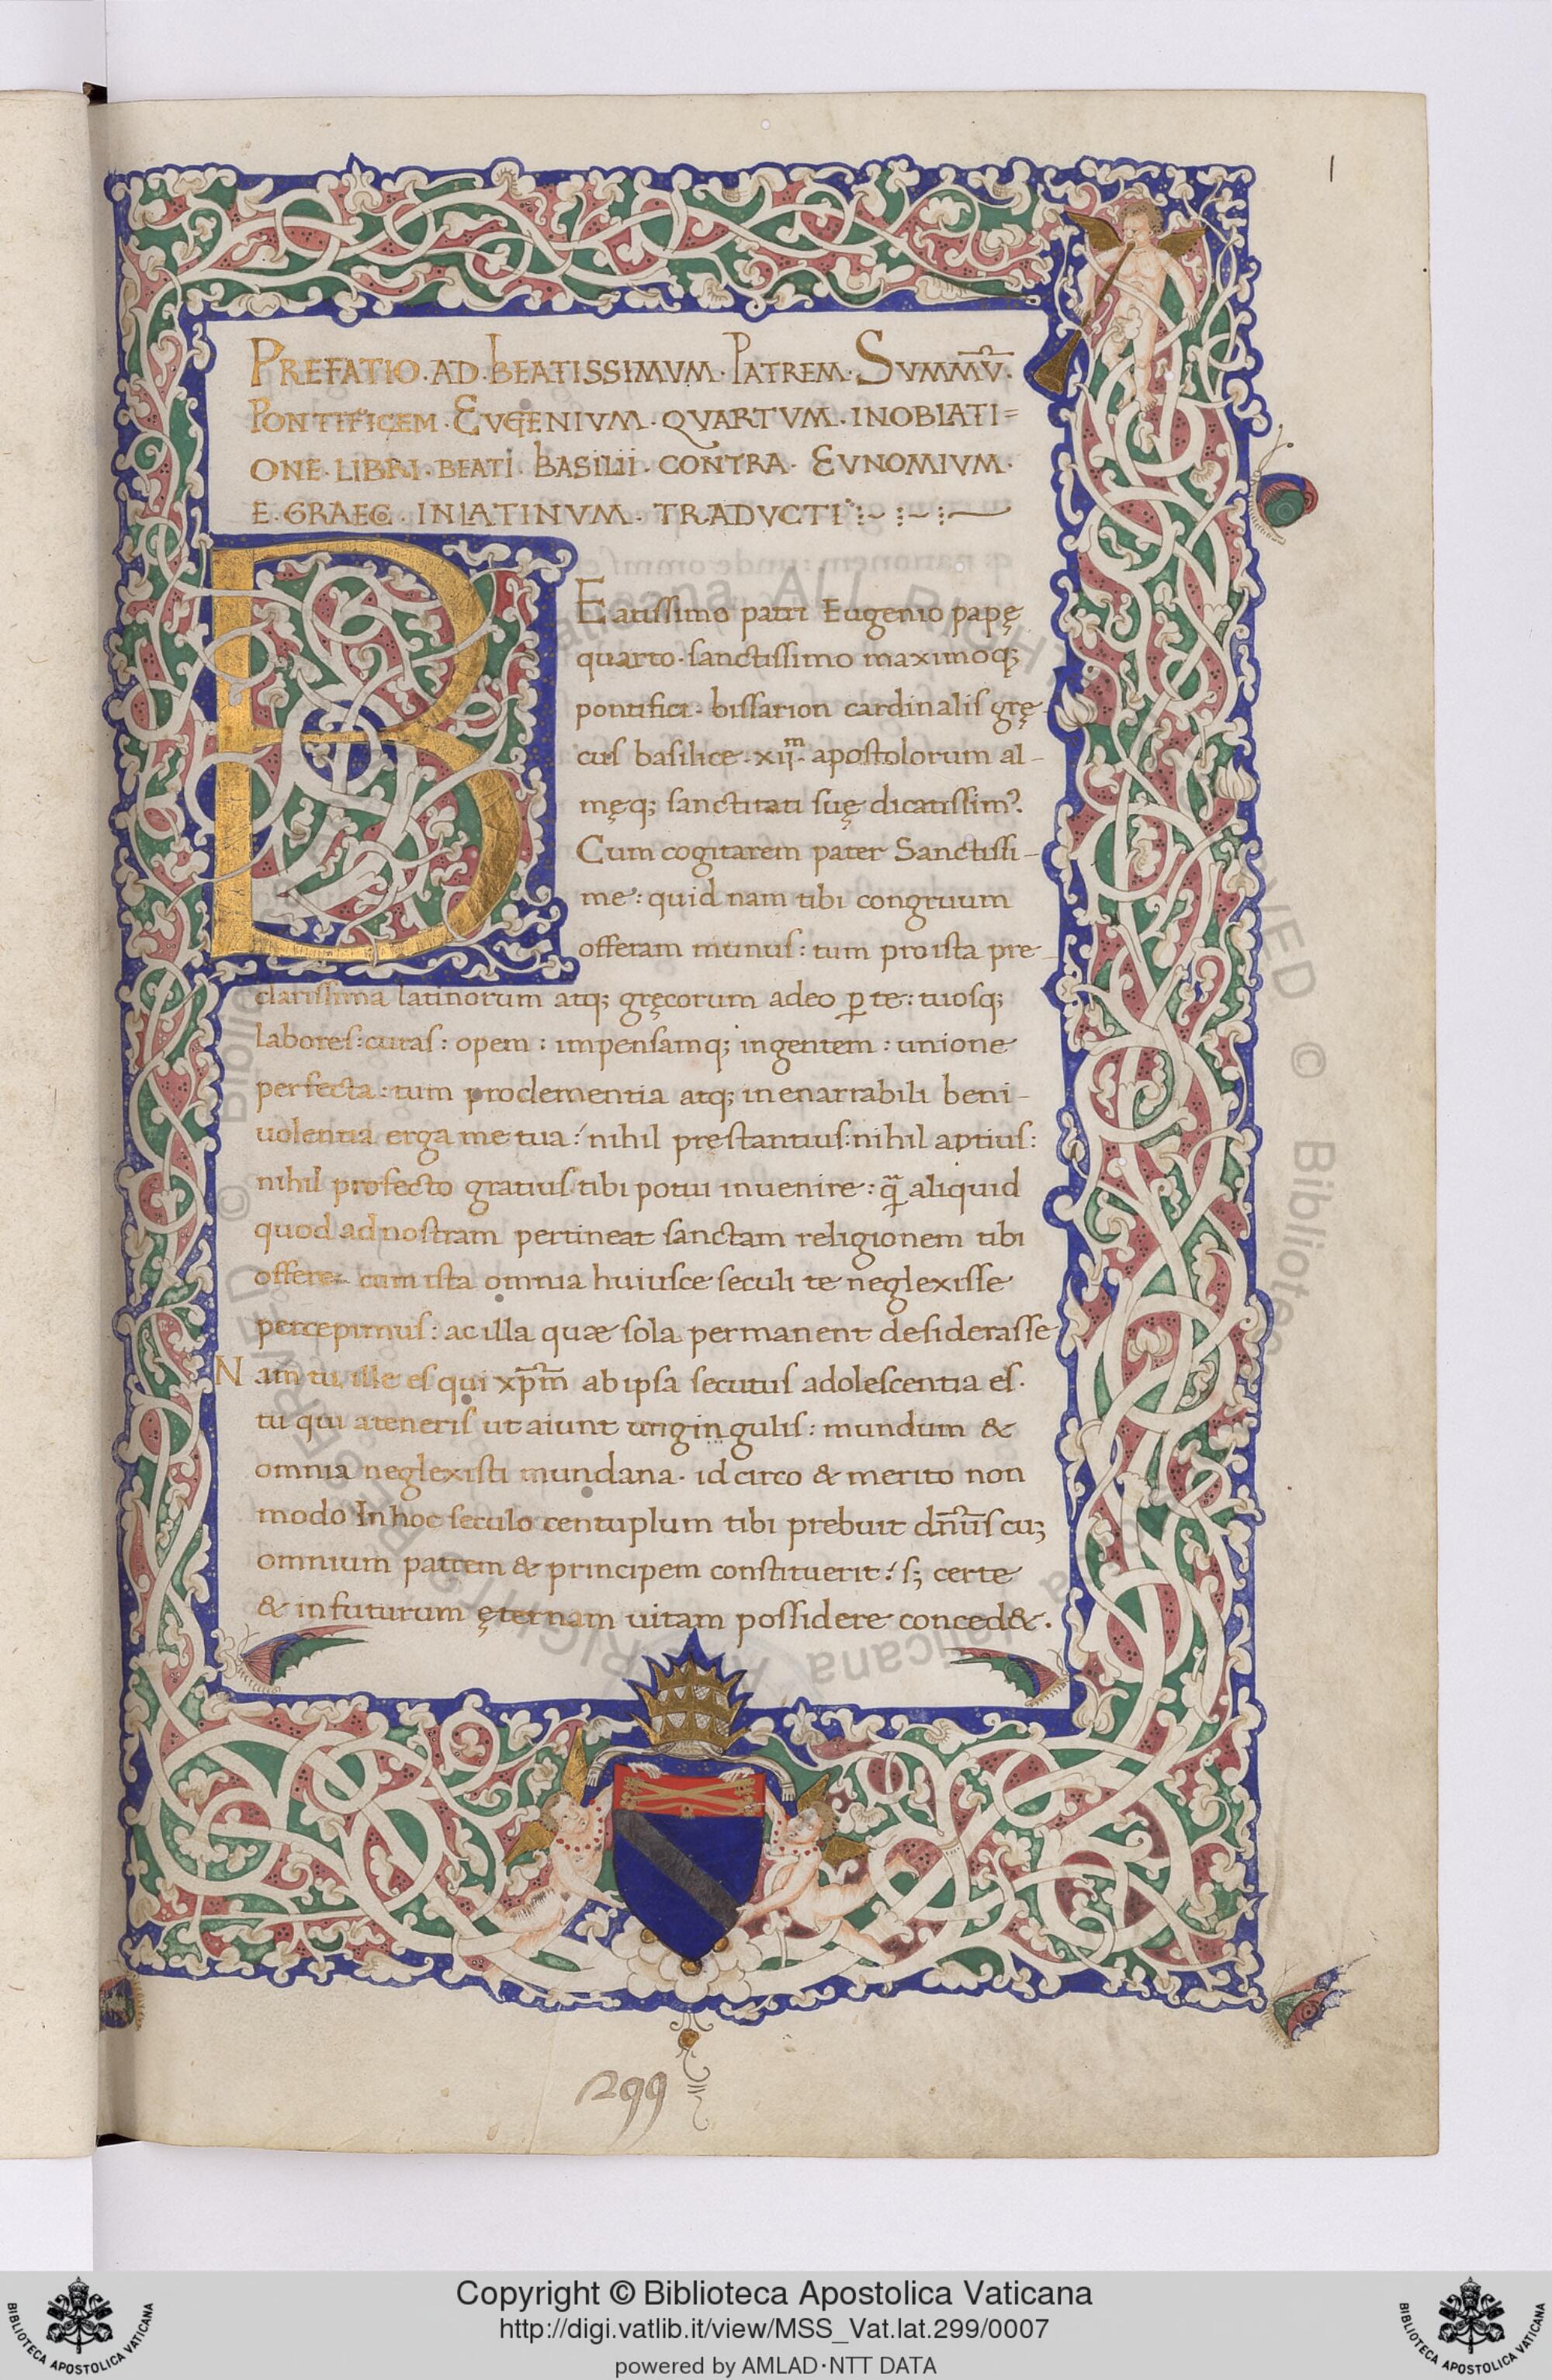 PREFATIO·AD·BEATISSIMVM·PATREM·SVMMV̅·
PONTIFICEM·EVGENIVM·QVARTVM·INOBLATI=
ONE·LIBRI·BEATI·BASILII·CONTRA·EVNOMIVM·
E·GRAECO·INLATINVM·TRADVCTI
BEatissimo patri Eugenio papę
quarto·sanctissimo maximoq;
pontifici·bissarion cardinalis grę
cus basilice·xijᵐ·apostolorum al-
męq; sanctitati suę dicatissimꝰ.
Cum cogitarem pater Sanctissi-
me: quid nam tibi congruum
offeram munus: tum pro ista pre-
clarissima latinorum atq; gręcorum adeo ꝑ te: tuosq;
labores: curas: opem: impensamq; ingentem: unione
perfecta: tum pro clementia atq; inenarrabili beni-
uolentia erga me tua: nihil prestantius: nihil aptius:
nihil profecto gratius tibi potui inuenire: ꝗ̄ aliquid
quod ad nostram pertineat sanctam religionem tibi
offere: cum ista omnia huiusce seculi te neglexisse
percepimus: ac illa quæ sola permanent desiderasse
Nam tu ille es qui xp̅m̅ ab ipsa secutus adolescentia es·
tu qui a teneris ut aiunt ungingulis: mundum &
omnia neglexisti mundana· id circo & merito non
modo In hoc seculo centuplum tibi prebuit dn̅us cu;
omnium patrem & principem constituerit: s; certe
& in futurum ęternam uitam possidere conced&.
1
299
Copyright © Biblioteca Apostolica Vaticana
http://digi.vatlib.it/view/MSS_Vat.lat.299/0007
powered by AMLAD·NTT DATA
BIBLIOTECA APOSTOLICA VATICANA
BIBLIOTECA APOSTOLICA VATICANA